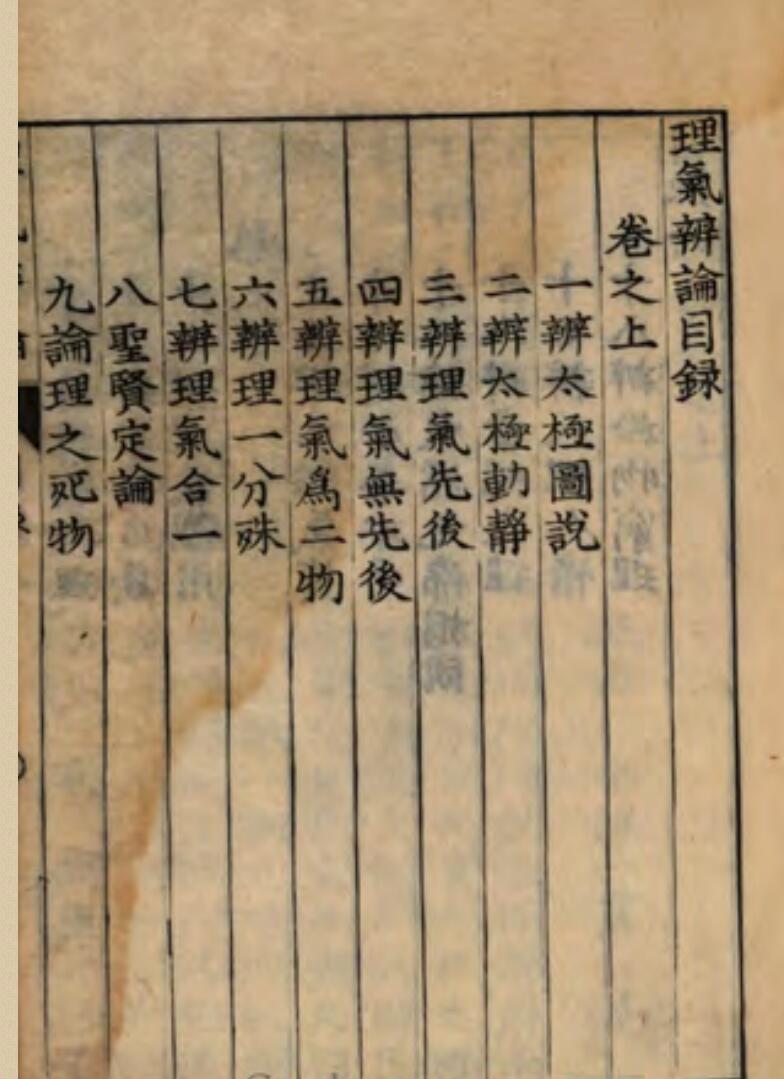 理氣辨論目録
卷之上
一辨太極圖說
二辨太極動靜
三辨理氣先後
四辨理氣無先後
五辨理氣爲二物
六辨理一分殊
七辨理氣合一
八聖賢定論
九論理之死物